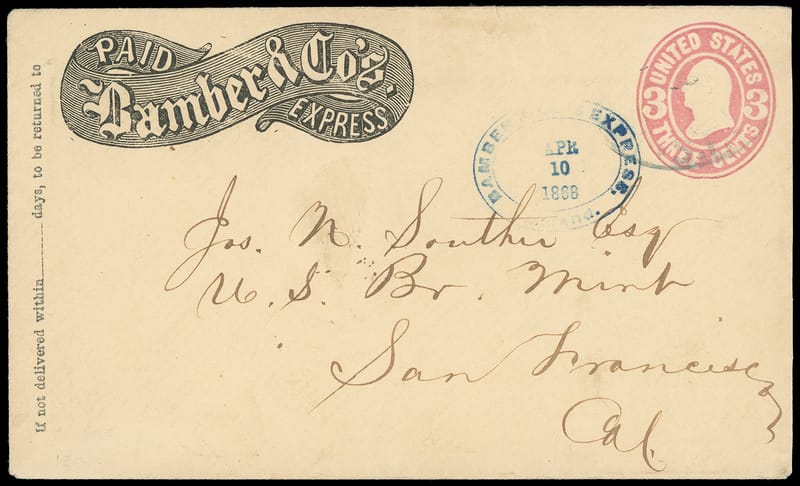 PAID
Bamber & Co's.
EXPRESS
UNITED STATES
3 3
THREE CENTS
BAMBER & CO'S EXPRESS,
APR
10
1868
If not delivered within ______ days, to be returned to
Jos. N. Souther Esq
U. S. Br. Mint
San Francisco
Cal.